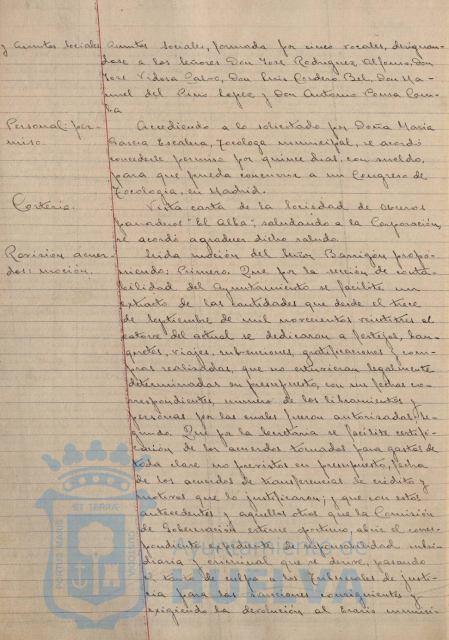 y Asuntos Sociales Asuntos Sociales, formada por cinco vocales, designan-
dose a los señores Don José Rodriguez Alfonso, Don
José Vidosa Calvo, Don Luis Cordero Bel, Don Ma-
nuel del Pino Lopez y Don Antonio Ponsa
Personal: per- Accediendo a lo solicitado por Doña Maria
miso. Garcia Escalera, Tocologa municipal, se acordó
concederle permiso por quince dias, con sueldo,
para que pueda concurrir a un Congreso de
Tocologia, en Madrid.
Cortesia. Vista carta de la Sociedad de obreros
panaderos "El Alba", saludando a la Corporación,
se acordó agradecer dicho saludo.
Revisión acuer- Leida moción del Señor Barrigón propo-
dos: moción. niendo: Primero. Que por la sección de conta-
bilidad del Ayuntamiento se facilite un
extracto de las cantidades que desde el trece
de Septiembre de mil novecientos veintitres al
catorce del actual se dedicaron a festejos, ban-
quetes, viajes, subvenciones, gratificaciones y com-
pras realizadas, que no estuvieran legalmente
determinadas en presupuesto, con sus fechas co-
rrespondientes, numero de los libramientos y
personas por las cuales fueron autorizadas. Se-
gundo. Que por la Secretaria se facilite certifi-
cación de los acuerdos tomados para gastos de
toda clase no previstos en presupuesto, fecha
de los acuerdos de transferencias de crédito y
motivos que lo justificaron; y que con estos
antecedentes y aquellos otros que la Comisión
de Gobernación estime oportuno, abrir el corres-
pondiente expediente de responsabilidad subsi-
diaria y criminal que se derive, pasando
el tanto de culpa a los Tribunales de justi-
cia para las sanciones consiguientes y
exigiendo la devolución al Erario munici-